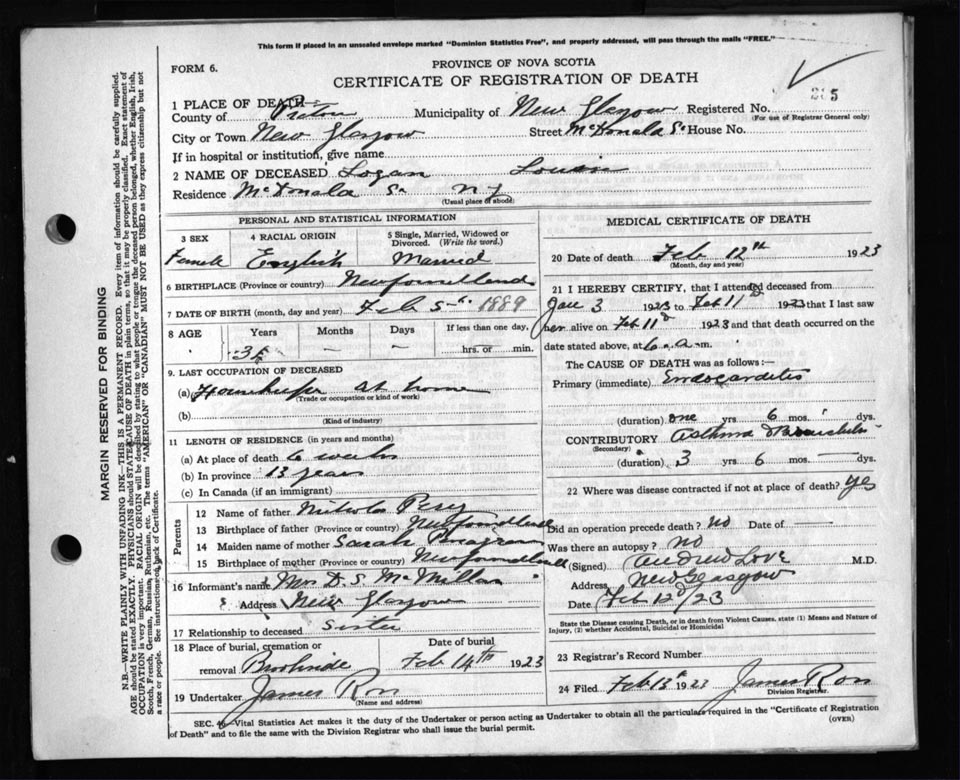 This form if placed in an unsealed envelope marked "Dominion Statistics Free", and properly addressed, will pass through the mails "FREE."
PROVINCE OF NOVA SCOTIA
FORM 6.
CERTIFICATE OF REGISTRATION OF DEATH
1 PLACE OF DEATH—
County of Pictou Municipality of New Glasgow Registered No. 285
(For use of Registrar General only)
City or Town New Glasgow Street McDonald St House No.
If in hospital or institution, give name
2 NAME OF DECEASED Logan
Residence McDonald St N G
(Usual place of abode)
PERSONAL AND STATISTICAL INFORMATION
3 SEX 4 RACIAL ORIGIN 5 Single, Married, Widowed or Divorced. (Write the word.)
Female English Married
6 BIRTHPLACE (Province or country) Newfoundland
7 DATE OF BIRTH (month, day and year) Feb 5th 1889
8 AGE Years Months Days If less than one day, hrs. or min.
— —
9. LAST OCCUPATION OF DECEASED
(a) Housekeeper at home
(Trade or occupation or kind of work)
(b)
(Kind of industry)
11 LENGTH OF RESIDENCE (in years and months)
(a) At place of death 6 weeks
(b) In province 13 years
(c) In Canada (if an immigrant)
Parents
12 Name of father Nicholas
13 Birthplace of father (Province or country) Newfoundland
14 Maiden name of mother Sarah
15 Birthplace of mother (Province or country) Newfoundland
16 Informant's name Mrs D. S. McMillan
& Address New Glasgow
17 Relationship to deceased Sister
18 Place of burial, cremation or Date of burial
removal Brookside Feb 14th 1923
19 Undertaker James Ross
(Name and address)
MEDICAL CERTIFICATE OF DEATH
20 Date of death Feb 12th 1923
(Month, day and year)
21 I HEREBY CERTIFY, that I attended deceased from
Jan 3 1923 to Feb 11 1923 that I last saw
her alive on Feb 11 1923 and that death occurred on the
date stated above, at 6 a.m.
The CAUSE OF DEATH was as follows:—
Primary (immediate) Endocarditis
(duration) one yrs 6 mos. dys.
CONTRIBUTORY Asthma & Bronchitis
(Secondary)
(duration) 3 yrs 6 mos. — dys.
22 Where was disease contracted if not at place of death? yes
Did an operation precede death? No Date of —
Was there an autopsy? No
(Signed) Andrew Love M.D.
Address New Glasgow
Date Feb 12 /23
State the Disease causing Death, or in death from Violent Causes, state (1) Means and Nature of
Injury, (2) whether Accidental, Suicidal or Homicidal
23 Registrar's Record Number
24 Filed Feb 13th 1923 James Ross
Division Registrar
SEC. —Vital Statistics Act makes it the duty of the Undertaker or person acting as Undertaker to obtain all the particulars required in the "Certificate of Registration
of Death" and to file the same with the Division Registrar who shall issue the burial permit.
(OVER)
MARGIN RESERVED FOR BINDING
N.B.—WRITE PLAINLY WITH UNFADING INK—THIS IS A PERMANENT RECORD. Every item of information should be carefully supplied.
AGE should be stated EXACTLY. PHYSICIANS should STATE CAUSE OF DEATH in plain terms, so that it may be properly classified. Exact statement of
OCCUPATION is very important. RACIAL ORIGIN will be described by stating to what people or tongue the deceased person belonged, whether English, Irish,
Scotch, French, German, Russian, Ruthenian, etc. The terms "AMERICAN" OR "CANADIAN" MUST NOT BE USED as they express citizenship but not
a race or people. See instructions on back of Certificate.